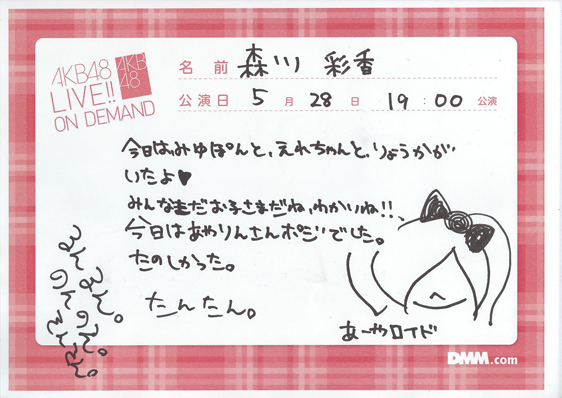 AKB48
LIVE!!
ON DEMAND
AKB
48
名前 森川 彩香
公演日 5月28日 19:00公演
今日は、みゆぽんと、えれちゃんと、りょうかが
いたよ♥
みんなまだお子さまだね、わかいね!!
今日はあやりんさんポジでした。
たのしかった。
たんたん。
るんるん。
のんのん。
あーやロイド
DMM.com